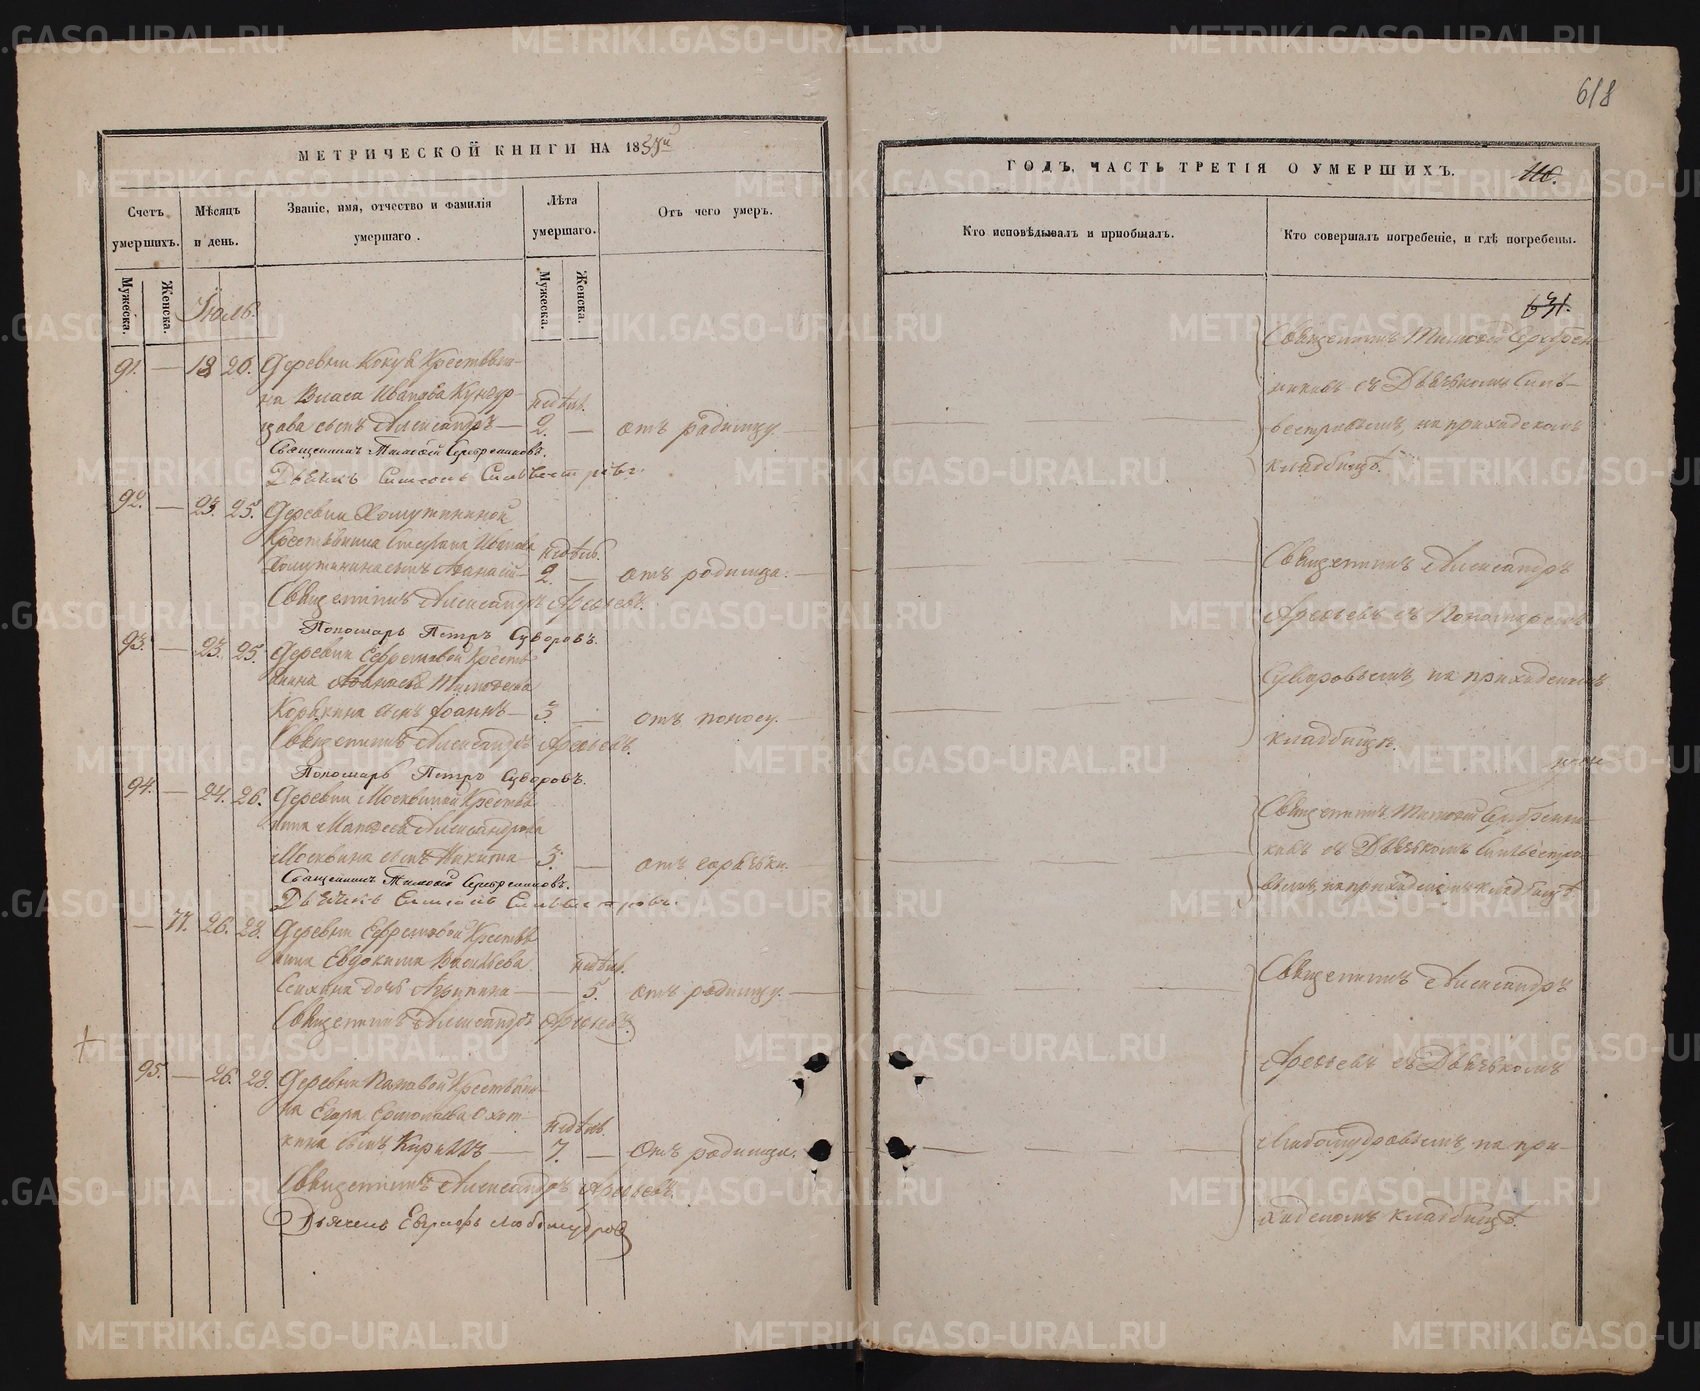 МЕТРИЧЕСКОЙ КНИГИ НА 18
Счетъ умершихъ.
Мѣсяцъ и день.
Званіе, имя, отчество и фамилія умершаго.
Лѣта умершаго.
Отъ чего умеръ.
Мужеска.
Женска.
Мужеска.
Женска.
Іюль.
91. — 18 20. Деревни Крестьяни-
на Власа Иванова
сынъ Александръ — недѣль 2. — отъ родимцу.
Священникъ Тимофей Серебренниковъ.
Дьячекъ Симеонъ Сильвестровъ.
92. — 23. 25. Деревни Хомутининой
Крестьянина Степана Иванова
Хомутинина сынъ Афанасій — недѣль 2. — отъ родимца.
Священникъ Александръ Арефьевъ.
Пономарь Петръ Суворовъ.
93. — 23. 25. Деревни Ефремовой Кресть-
янина Тимофеева
Корякина сынъ Іоаннъ — 3. — отъ поносу.
Священникъ Александръ Арефьевъ.
Пономарь Петръ Суворовъ.
94. — 24. 26. Деревни Москвиной Крестья-
нина Матвея Александрова
Москвина сынъ Никита — 3. — отъ
Священникъ Тимофей Серебренниковъ.
Дьячекъ Симеонъ Сильвестровъ.
— 77. 26. 28. Деревни Ефремовой Крестья-
нина Евдокима Васильева
дочь Агрипина — недѣль 5. отъ родимцу.
Священникъ Александръ Арефьевъ.
95. — 26. 28. Деревни Крестьяни-
на Егора Ермолаева Охот-
кина сынъ Кириллъ — недѣль 7. — отъ родимца.
Священникъ Александръ Арефьевъ.
Дьячекъ Евграфъ Любомудровъ
618
ГОДЪ, ЧАСТЬ ТРЕТІЯ О УМЕРШИХЪ.
Кто исповѣдывалъ и пріобщалъ.
Кто совершалъ погребеніе, и гдѣ погребены.
631.
Священникъ Тимофей Серебрен-
никовъ съ Дьячкомъ Силь-
вестровымъ, на приходскомъ
кладбищѣ.
Священникъ Александръ
Арефьевъ съ Пономаремъ
Суворовымъ, на приходскомъ
кладбищѣ.
Священникъ Тимофей Серебренни-
ковъ съ Дьячкомъ Сильвестро-
вымъ, на приходскомъ кладбищѣ.
Священникъ Александръ
Арефьевъ съ Дьячкомъ
Любомудровымъ, на при-
ходскомъ кладбищѣ.
METRIKI.GASO-URAL.RU